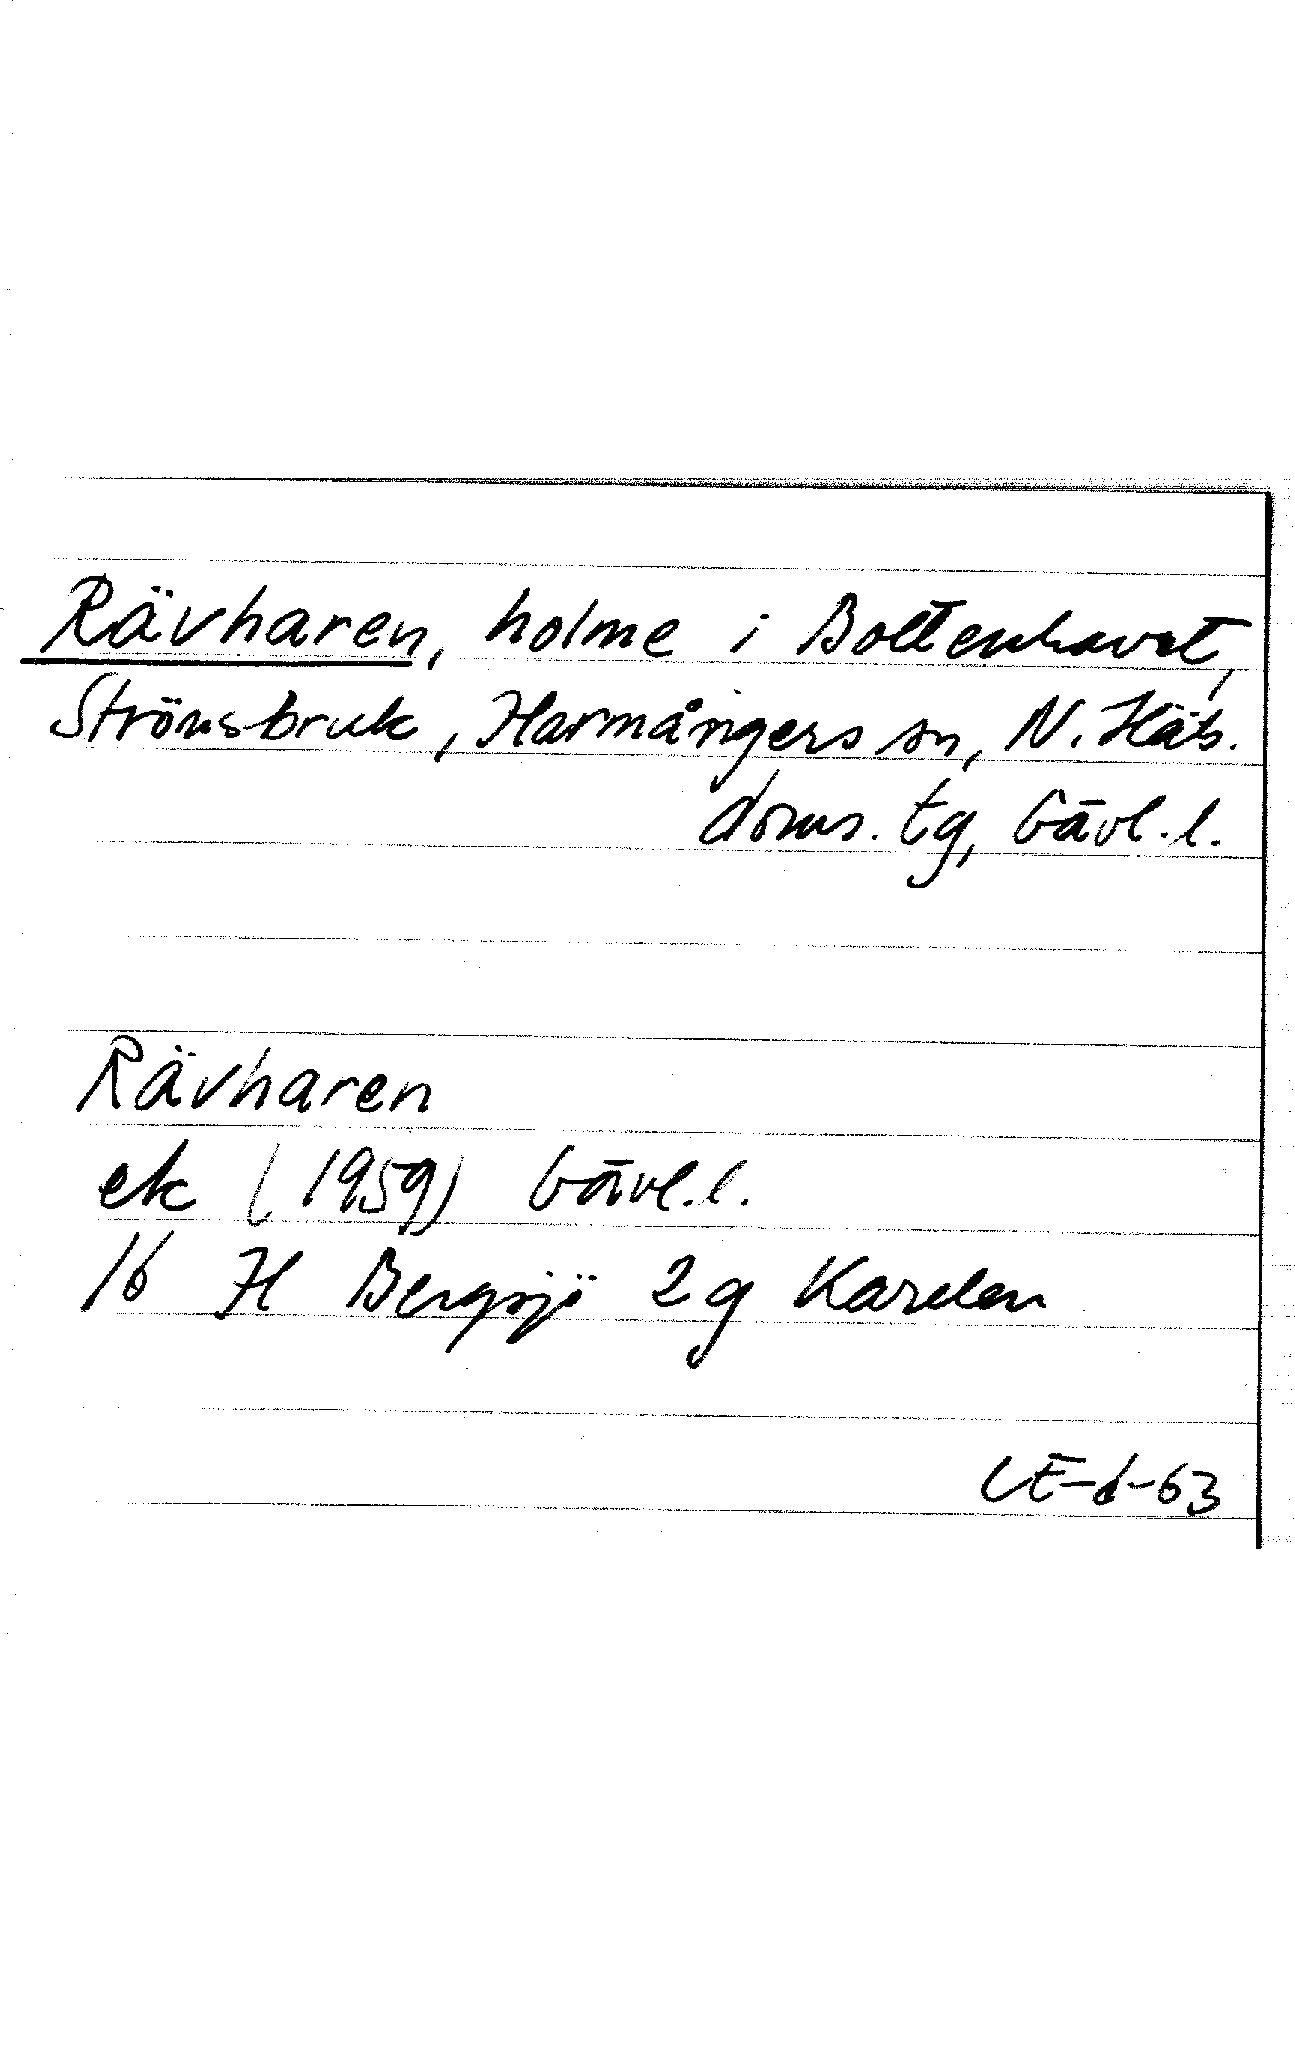 Rävharen, holme i Bottenhavet,
Strömsbruk, Harmångers sn, N. Häls.
doms. tg, Gävl. l.
Rävharen
ek (1959) Gävl. l.
16 H Bergsjö 2 g Karden
CE-6-63